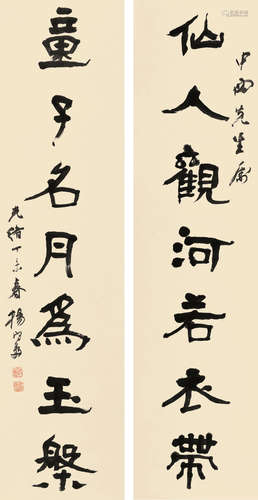 仙人觀河若衣帶
童子名月為玉槃
先生屬
光緒丁未春楊守敬